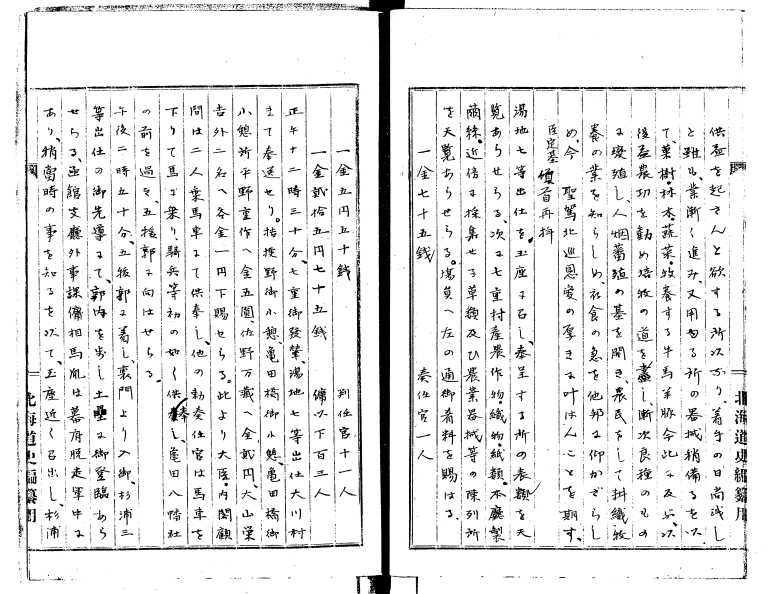 供益を起さんと欲する所次かり、着手の日尚浅し
と雖も業漸く進み、又用ゐる所の器械稍備るを以
て、菓樹・林木・蔬菜・牧養する牛馬羊豚今此に及ぶ、以
後益農功を勧め培牧の道を盡し、漸次良種のもの
に変殖し、人烟蕃殖の基を開き、農民をして耕織牧
養の業を知らしめ、衣食の急を他邦に仰かざらし
め、今 聖駕北巡恩愛の厚きに叶はんことを期す、
臣定基頓首再拝
湯地七等出仕を玉座に召し、奉呈する所の表類を天
覧あらせらる、次に七重村産農作物・織物・紙類、本廳製
繭絲、近傍に採集せる草類及び農業器械等の陳列所
を天覧あらせらる。場員へ左の通御肴料を賜はる。
一金七十五銭 奏任官一人
一金五円五十銭 判任官十一人
一金貳拾五円七十五銭 傭以下百三人
正午十二時三十分、七重御發輦、湯地七等出仕大川村
まで奉送せり。桔梗野御小憩、亀田橋御小憩、亀田橋御
小憩所平野重作へ金五圓、佐野万蔵へ金貳円、大山栄
吉外二名へ各金一円下賜せらる。此より大臣・内閣顧
問は二人乗馬車にて供奉し、他の勅奏任官は馬車を
下りて馬に乗り、騎兵等初の如く供奉し、亀田八幡社
の前を過き、五稜郭に向はせらる。
午後二時五十分、五稜郭に着し、裏門より入御、杉浦三
等出仕の御先導にて、郭内を歩し土壘に御登臨あら
せらる、函館支廳外事課傭相馬胤は幕府脱走軍中に
あり、稍當時の事を知るを以て、玉座近く召出し、杉浦
北海道史編纂用
北海道史編纂用